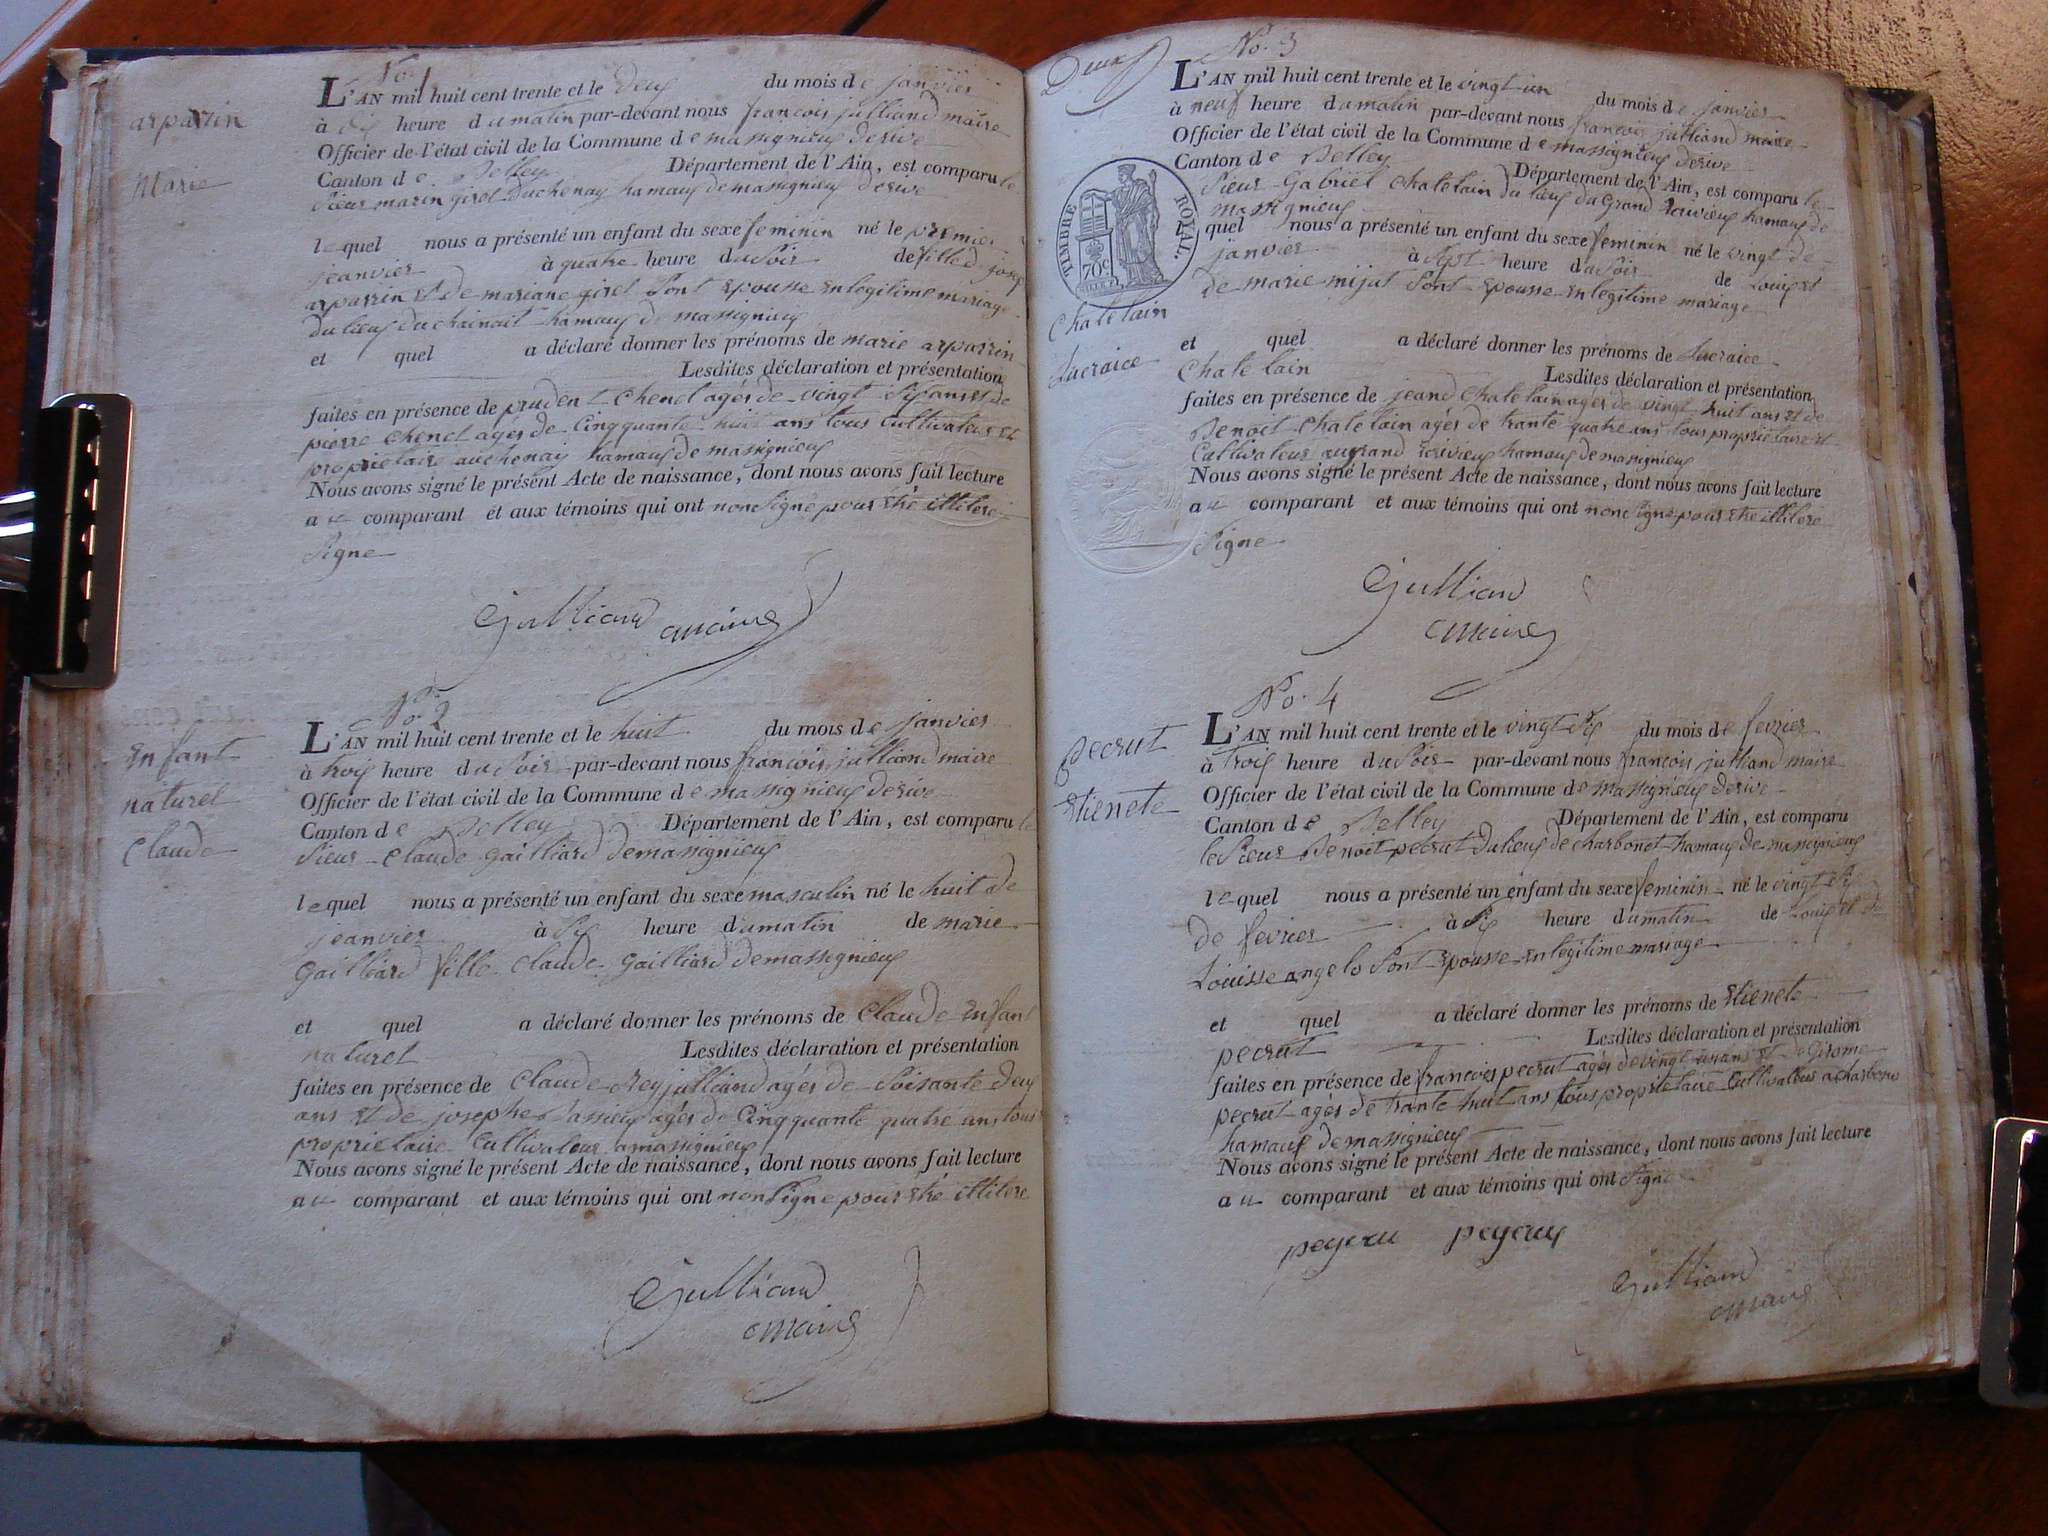 No. 1
arparrin
Marie
L'AN mil huit cent trente et le deux du mois de janvier
à dix heure du matin par-devant nous francois julliand maire
Officier de l'état civil de la Commune de massignieux derive
Canton de Belley Département de l'Ain, est comparu le
Sieur marin girel duchenay hamaux de massignieux derive
lequel nous a présenté un enfant du sexe feminin né le premier
jeanvier à quatre heure du Soir de fille d. josep
arparrin et de mariane girel Sont Epousse En legitime mariage
du lieux du chainait hamaux de massignieux
et quel a déclaré donner les prénoms de marie arparrin
Lesdites déclaration et présentation
faites en présence de prudent Chenel agés de vingt Six ans et de
pierre Chenel agés de Cinqquante huit ans tous Cultivateur Et
proprietaire auchenay hamaux de massignieux
Nous avons signé le présent Acte de naissance, dont nous avons fait lecture
au comparant et aux témoins qui ont non Signé pour Etre illitere
Signe
Julliand maire
No. 2
Enfant
naturel
Claude
L'AN mil huit cent trente et le huit du mois de janvier
à trois heure du Soir par-devant nous francois julliand maire
Officier de l'état civil de la Commune de massignieux derive
Canton de Belley Département de l'Ain, est comparu le
Sieur Claude gailliard demassignieux
lequel nous a présenté un enfant du sexe masculin né le huit de
jeanvier à Six heure du matin de marie
gailliard fille Claude gailliard demassignieux
et quel a déclaré donner les prénoms de Claude Enfant
naturel Lesdites déclaration et présentation
faites en présence de Claude Rey julliand agés de Soisante deux
ans Et de josephe agés de Cinqquante quatre ans tous
proprietaire Cultivateur amassignieux
Nous avons signé le présent Acte de naissance, dont nous avons fait lecture
au comparant et aux témoins qui ont non Signe pour Etre illitere
Julliand
maire
Deux
No. 3
TIMBRE ROYAL.
70c
Chatelain
Lucraice
L'AN mil huit cent trente et le vingt un du mois de janvier
à neuf heure du matin par-devant nous francois julliand maire
Officier de l'état civil de la Commune de massignieux derive
Canton de Belley Département de l'Ain, est comparu le
Sieur Gabriel Chatelain du lieux du Grand hamaux de
massignieux
lequel nous a présenté un enfant du sexe feminin né le vingt de
janvier à Sept heure du Soir de Louis et
de marie mijat Sont Epousse En legitime mariage
et quel a déclaré donner les prénoms de Lucraice
Chatelain Lesdites déclaration et présentation
faites en présence de jeand Chatelain agés de vingt huit ans Et de
Benoit Chatelain agés de trante quatre ans tous proprietaire et
Cultivateur augrand hamaux de massignieux
Nous avons signé le présent Acte de naissance, dont nous avons fait lecture
au comparant et aux témoins qui ont non Signe pour Etre illitere
Signe
Julliand
maire
No. 4
pecrut
Etienete
L'AN mil huit cent trente et le vingt Six du mois de fevrier
à trois heure du Soir par-devant nous francois julliand maire
Officier de l'état civil de la Commune de massignieux derive
Canton de Belley Département de l'Ain, est comparu
le Sieur Benoit pecrut du lieux de charbonet hamaux de massignieux
lequel nous a présenté un enfant du sexe feminin né le vingt Six
de fevrier à Six heure du matin de Louis et de
Louisse angelo Sont Epousse En legitime mariage
et quel a déclaré donner les prénoms de Etienete
pecrut Lesdites déclaration et présentation
faites en présence de francois pecrut agés de vingt un ans Et de Girome
pecrut agés de trante huit ans tous proprietaire Cultivateur acharbone
hamaux de massignieux
Nous avons signé le présent Acte de naissance, dont nous avons fait lecture
au comparant et aux témoins qui ont Signe
Julliand
maire